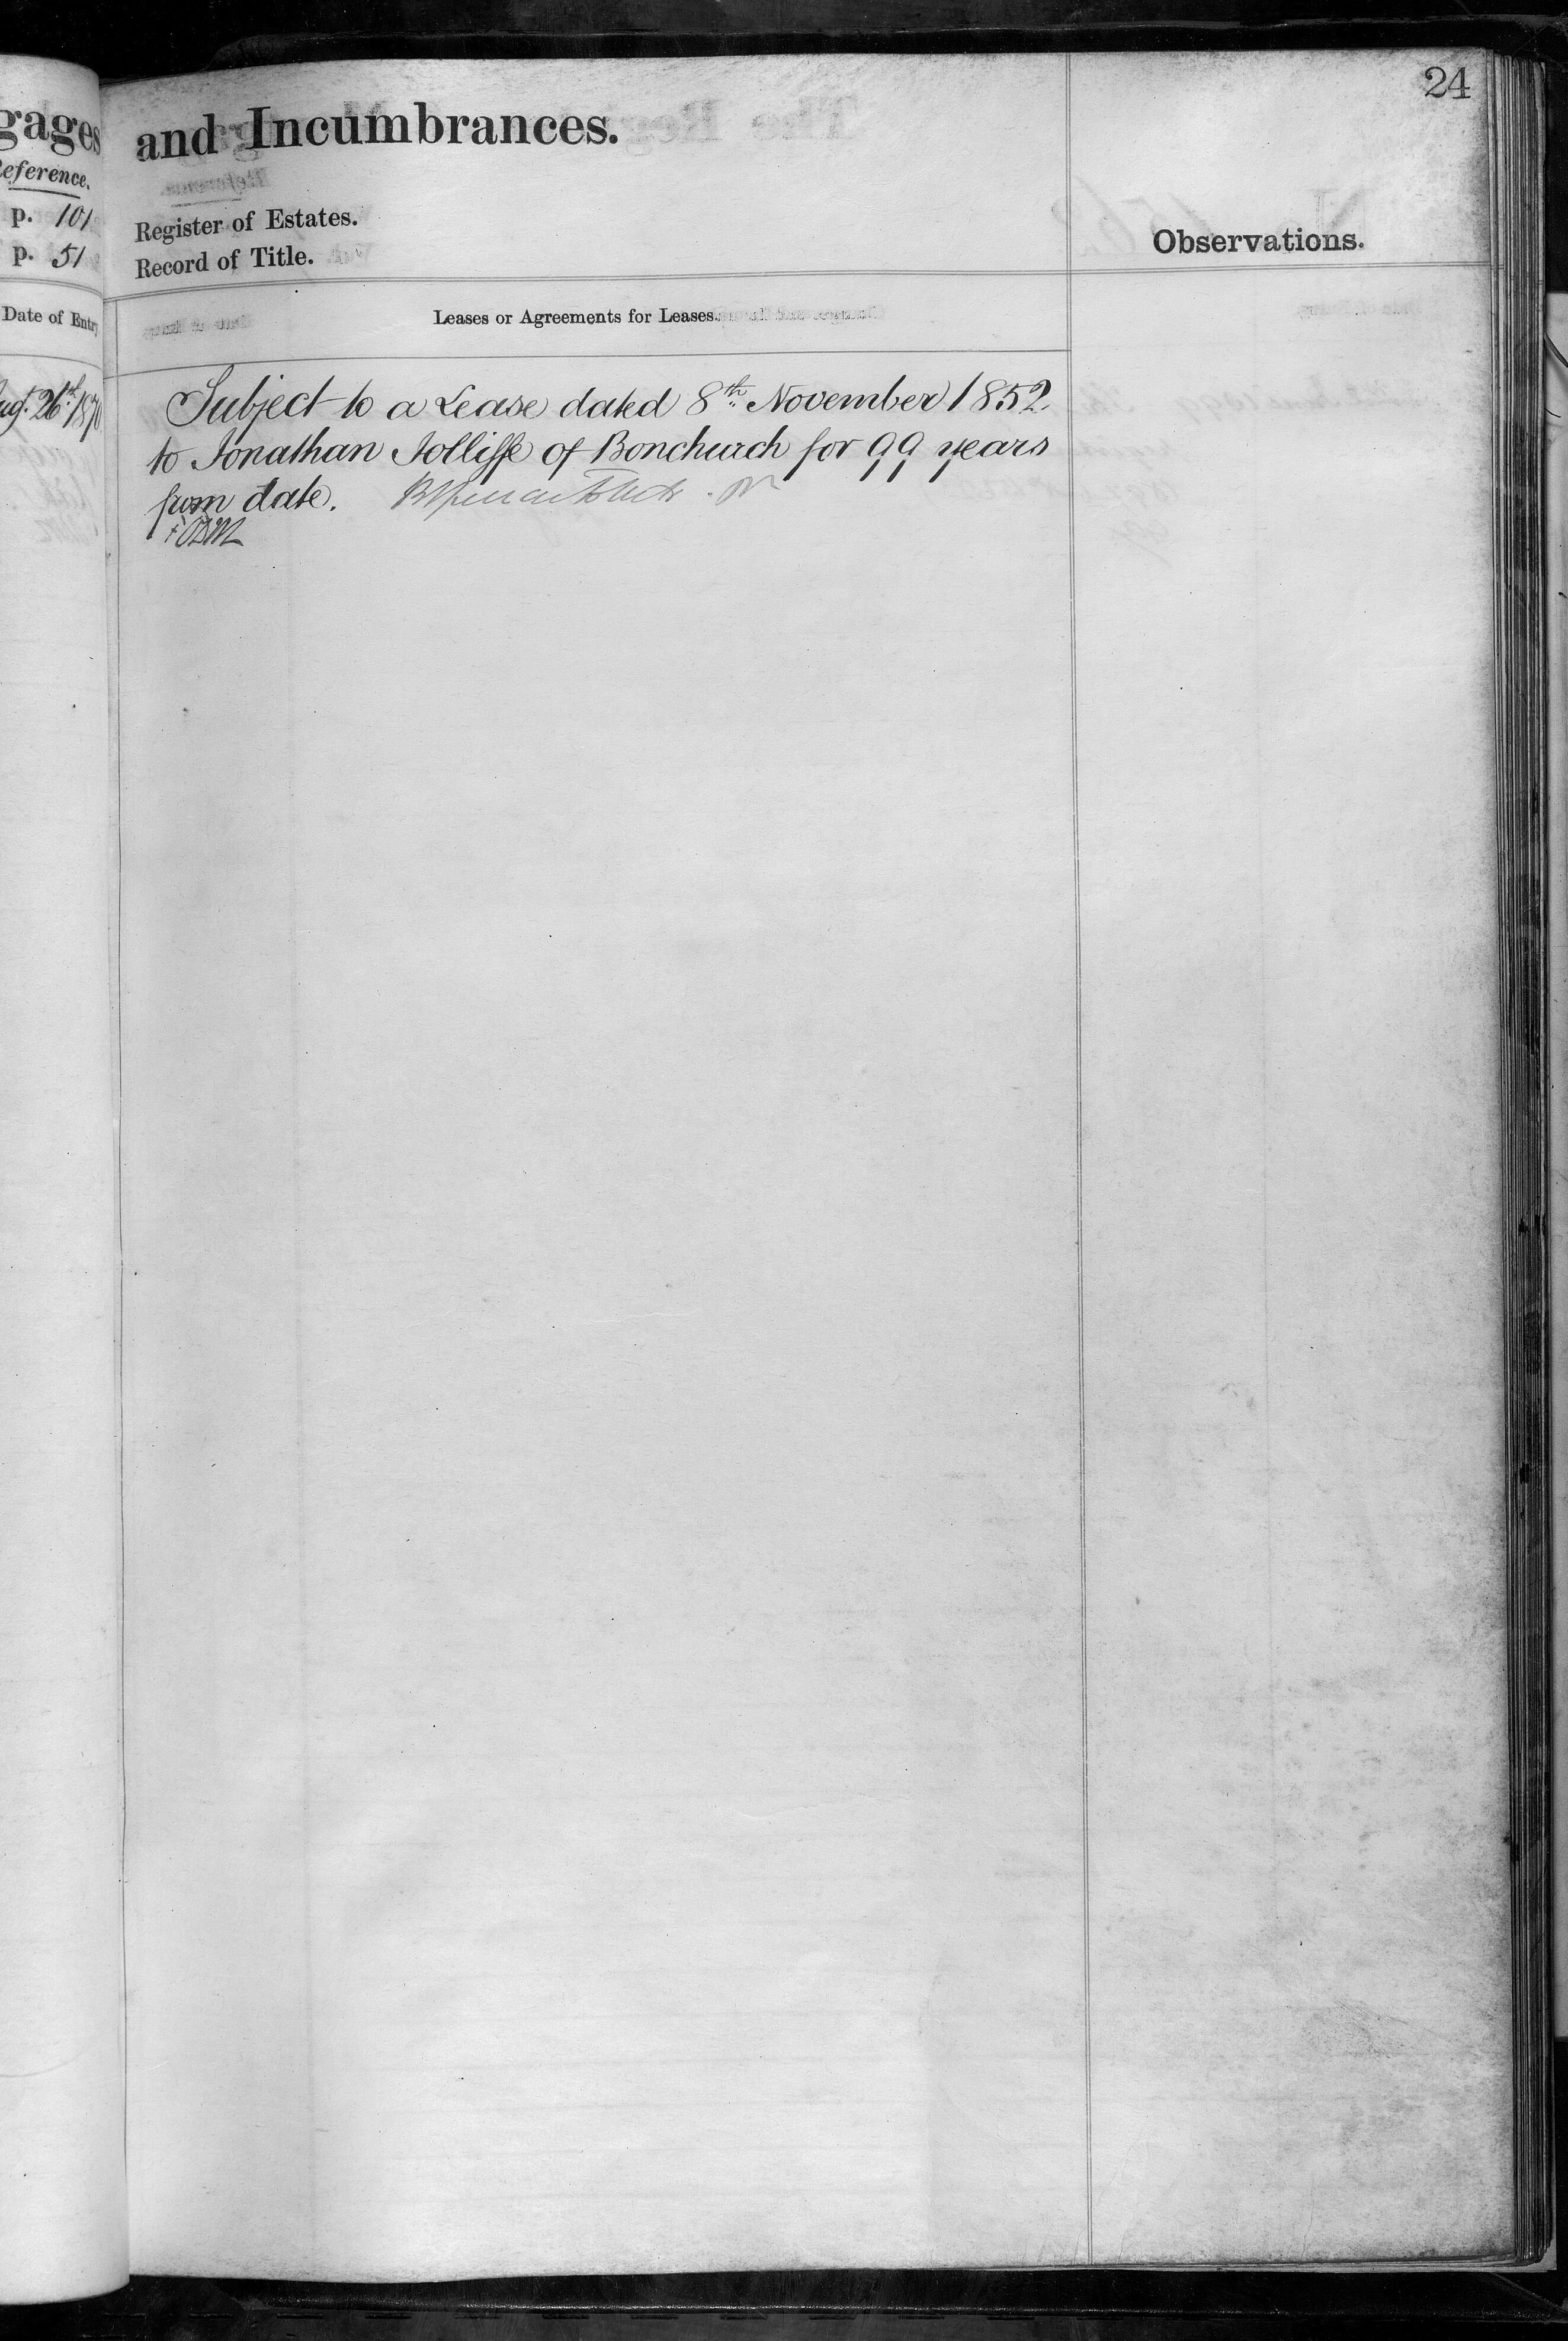 24
gages
eference.
p. 101
p. 51
Date of Entry
Aug. 26th: 1870
and Incumbrances.
Register of Estates.
Record of Title.
Observations.
Leases or Agreements for Leases.
Subject to a Lease dated 8th November 1852
to Jonathan Jolliffe of Bonchurch for 99 years
from date.